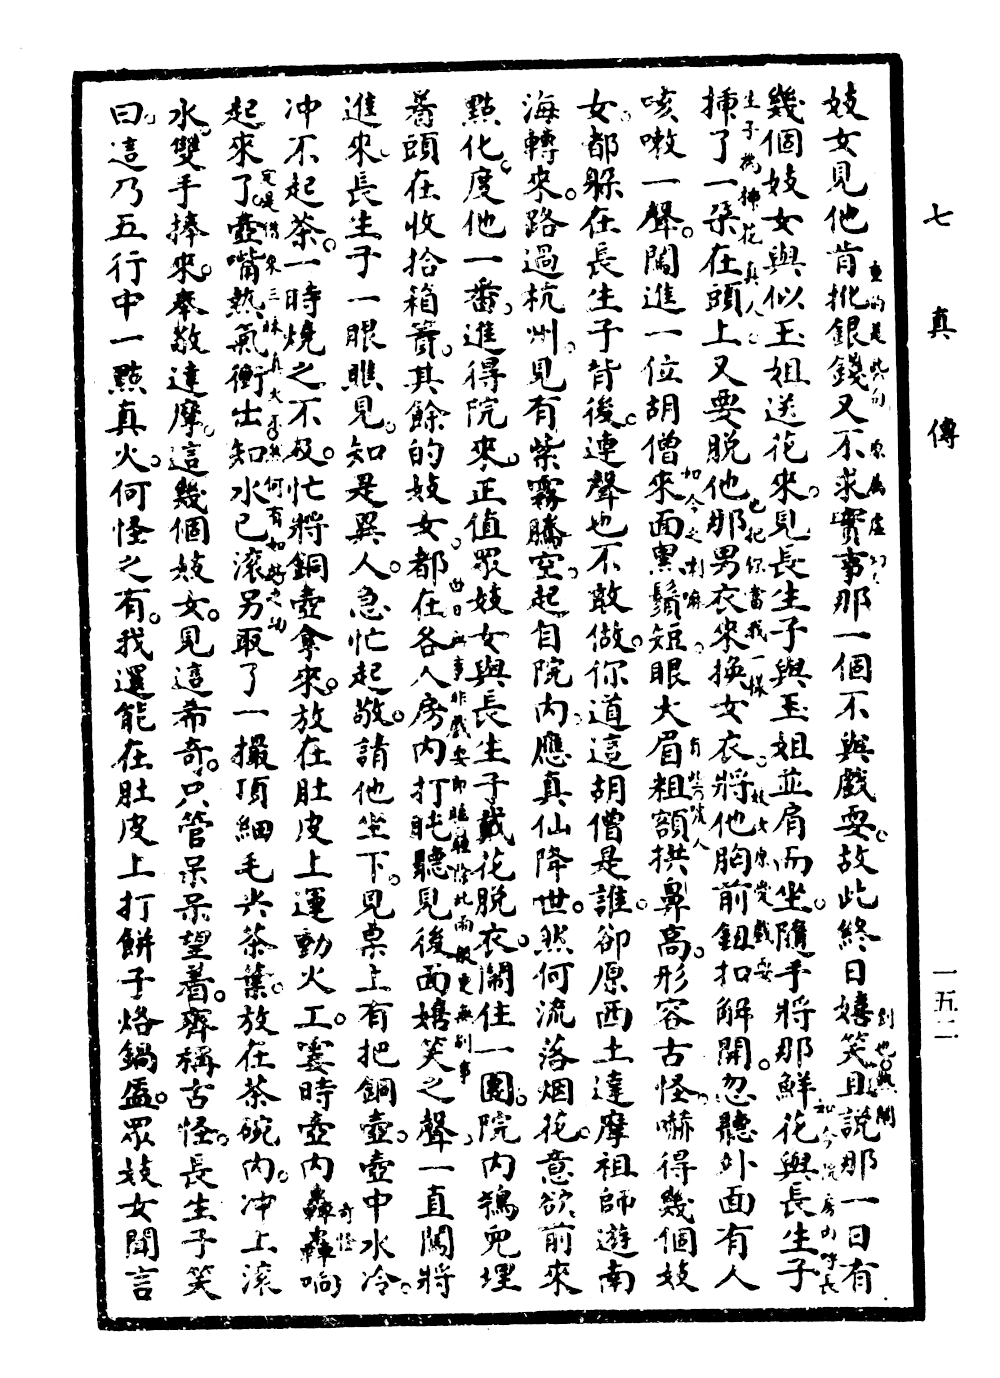 七真傳
一五二
妓女見他肯批銀錢又不求實事那一個不與戲耍故此終日嬉笑且說那一日有
幾個妓女與似玉姐送花來見長生子與玉姐並肩而坐隨手將那鮮花與長生子
插了一朶在頭上又要脫他那男衣來換女衣將他胸前鈕扣解開忽聽外面有人
咳嗽一聲闖進一位胡僧來面黑鬚短眼大眉粗額拱鼻高形容古怪嚇得幾個妓
女都躲在長生子背後連聲也不敢做你道這胡僧是誰卻原西土達摩祖師遊南
海轉來路過杭州見有紫霧騰空起自院內應真仙降世然何流落烟花意欲前來
點化度他一番進得院來正值眾妓女與長生子戴花脫衣鬧住一團院內鴇兒埋
著頭在收拾箱篢其餘的妓女都在各人房內打盹聽見後面嬉笑之聲一直闖將
進來長生子一眼瞧見知是異人急忙起敬請他坐下見桌上有把銅壺壺中水冷
冲不起茶一時燒之不及忙將銅壺拿來放在肚皮上運動火工霎時壺內轟轟响
起來了壺嘴熱氣衝出知水已滾另取了一撮頂細毛尖茶葉放在茶碗內冲上滾
水雙手捧來奉敬達摩這幾個妓女見這希奇只管呆呆望着齊稱古怪長生子笑
曰這乃五行中一點真火何怪之有我還能在肚皮上打餅子烙鍋盔眾妓女聞言